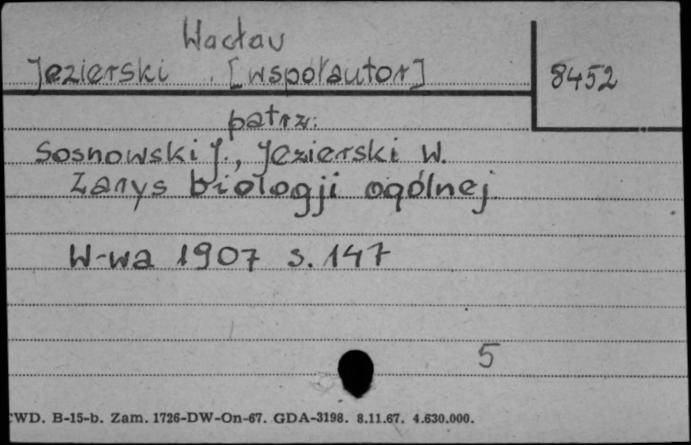 Wacław
Jezierski [współautor]
8452
patrz:
Sosnowski J., Jezierski W.
Zarys biologji ogólnej
W-wa 1907 s. 147
5
WD. B-15-b. Zam. 1726-DW-On-67. GDA-3198. 8.11.67. 4.630.000.